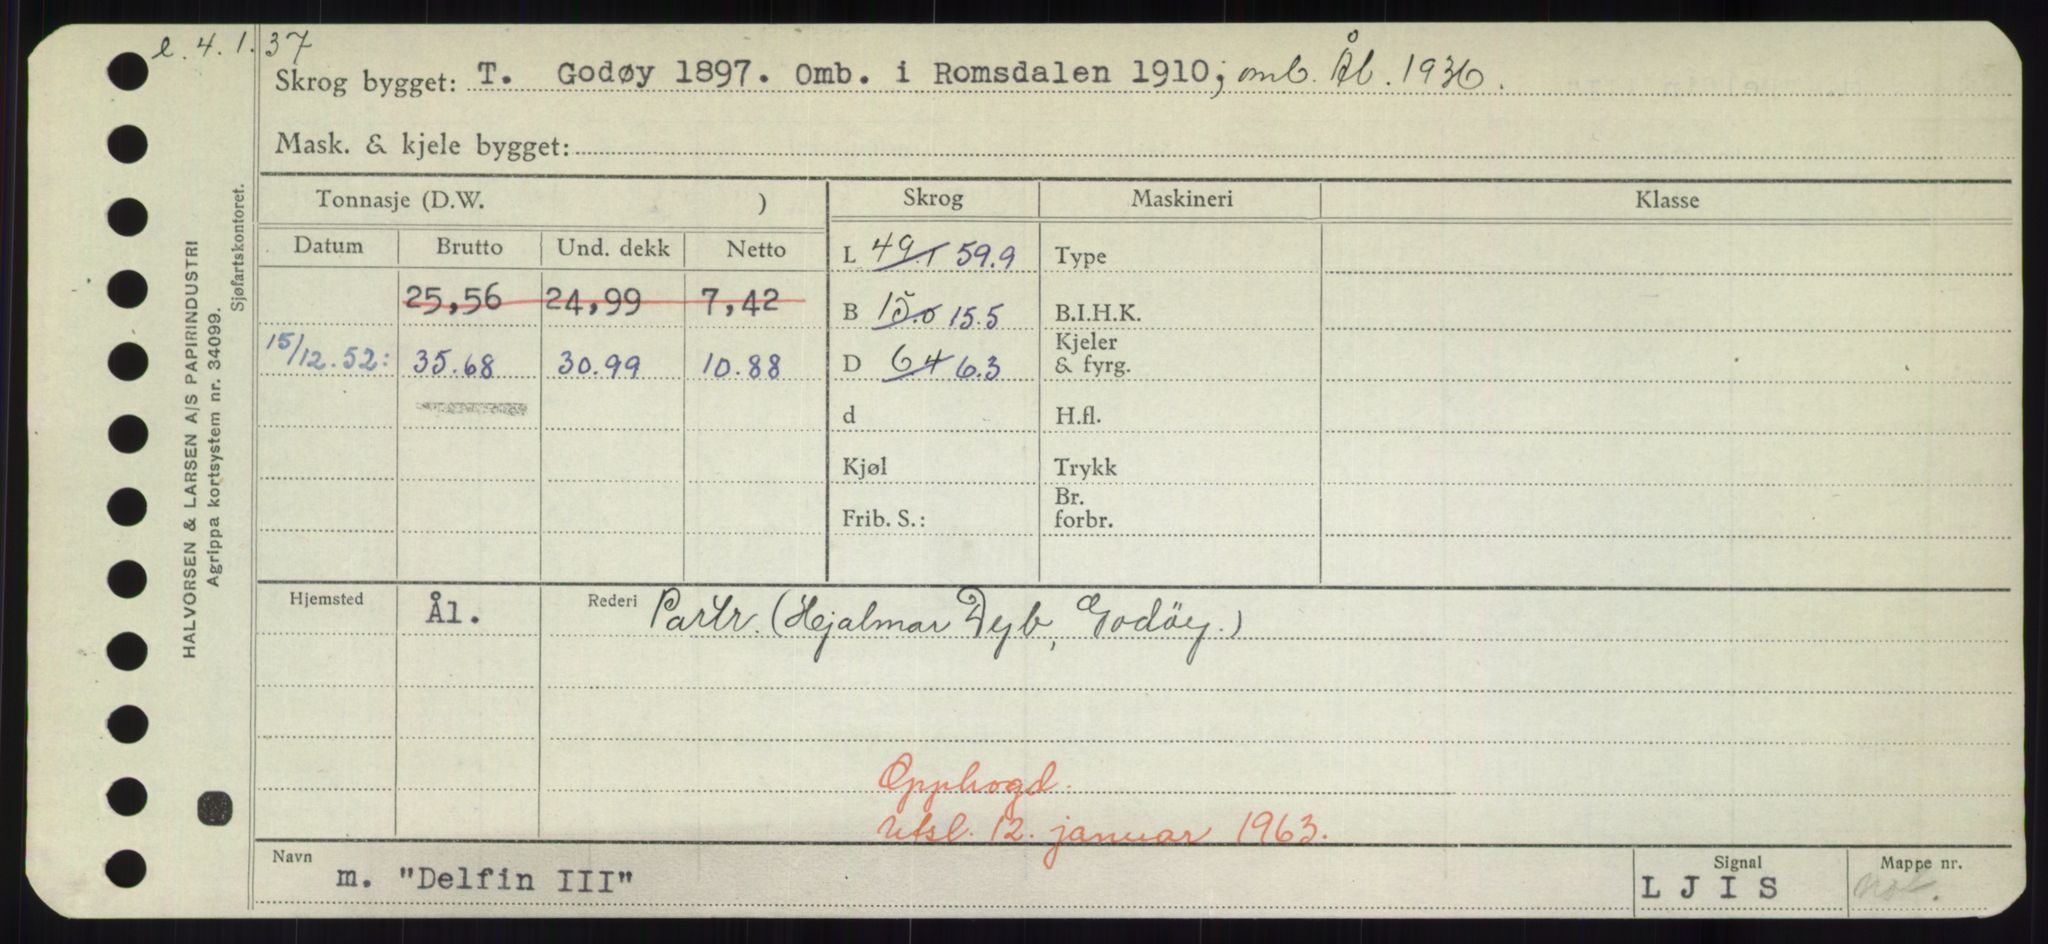 e. 4. 1. 37
Skrog bygget: T. Godøy 1897. Omb. i Romsdalen 1910; omb. Ål. 1936.
Mask. & kjele bygget:
Tonnasje (D.W. ) Skrog Maskineri Klasse
Datum Brutto Und. dekk Netto
L 49.1 59.9 Type
25,56 24,99 7,42
B 15.0 15.5 B.I.H.K.
15/12.52: 35.68 30.99 10.88
D 6.4 6.3 Kjeler & fyrg.
d H.fl.
Kjøl Trykk
Frib. S.: Br. forbr.
Hjemsted Ål. Rederi Partr. (Hjalmar Dyb, Godöy.)
Opphogd.
Utsl. 12. januar 1963.
Navn m. "Delfin III" Signal LJIS Mappe nr.
HALVORSEN & LARSEN A/S PAPIRINDUSTRI
Agrippa kortsystem nr. 34099.
Sjøfartskontoret.